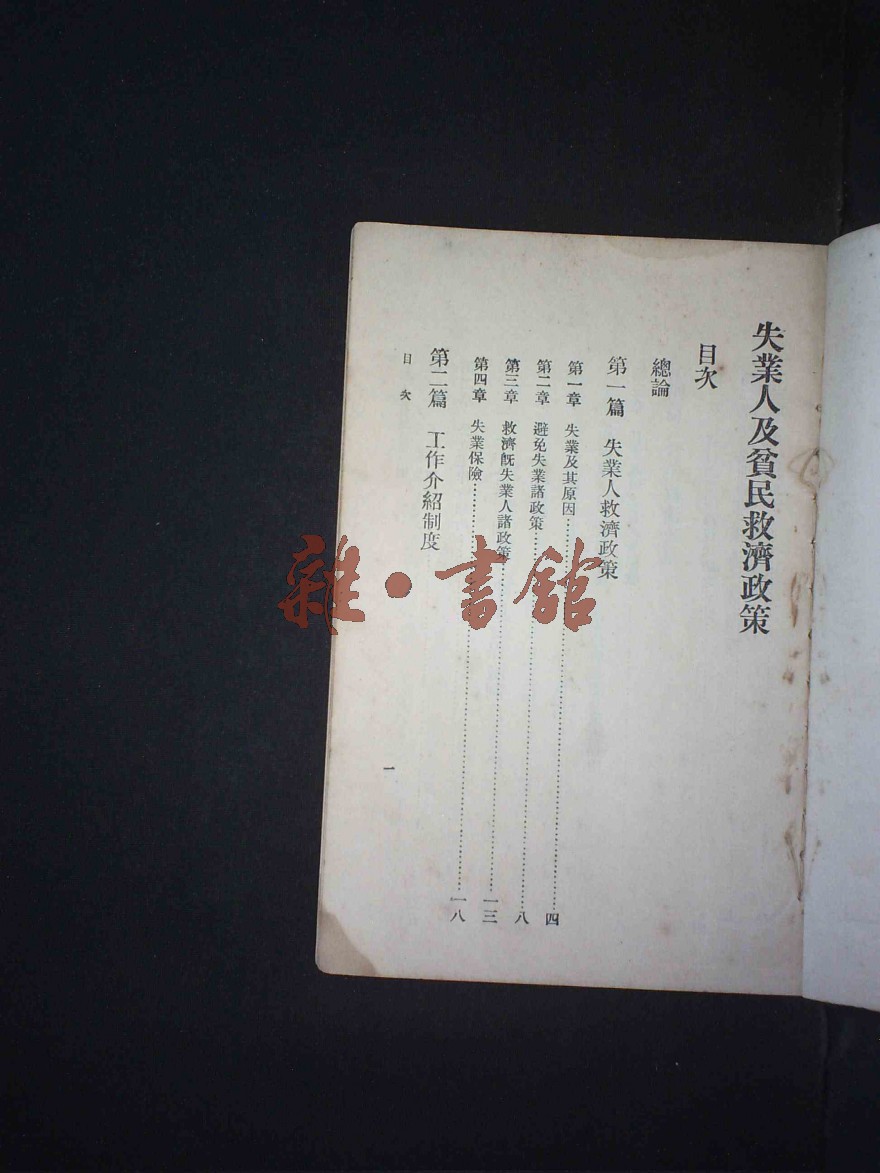 失業人及貧民救濟政策
目次
總論
第一篇 失業人救濟政策
第一章 失業及其原因 四
第二章 避免失業諸政策 八
第三章 救濟旣失業人諸政策 一三
第四章 失業保險 一八
第二篇 工作介紹制度
目次 一
雜·書館